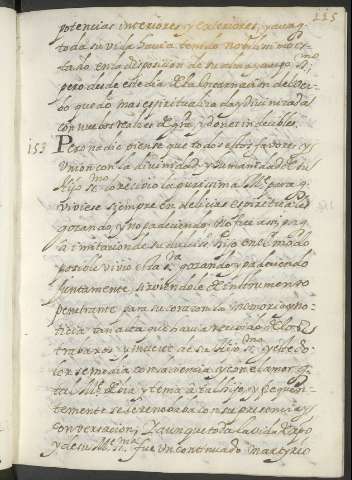 225
potencias interiores, y exteriores, y aunq̃
toda su vida havia tenido nobilissimo es-
tado en la disposicion de su alma y cuerpo SSmo
pero desde este dia de la Encarnacion del Ver-
bo quedò mas espiritualizada y divinizada
con nuevos realces de gra, y dones indecibles.
153 Pero nadie piense que todos estos favores, y
Union con la divinidad y humanidad de su
Hijo SSmo los recibio la purissima Me. para q̃
viviese siempre en delicias espirituales
gozando, y no padeciendo. No fue asi, pa q̃
a imitacion de su dulcisso. Hijo en el modo
posible vivio esta Sra gozando y padeciendo
juntamente, sirviendole de instrumento
penetrante para su corazon la memoria, y no-
ticia tan alta que havia recibido de los
trabaxos, y muerte de su Hijo SSmo y este do-
lor se media con la ciencia, y con el amor q̃
tal Me. debia y tenia à tal Hijo, y freqüen-
temente se le renobaba con su presencia, y
conversacion; Y aunque toda la vida de Xpo
y de su Me. SSma fue un continuado martyrio